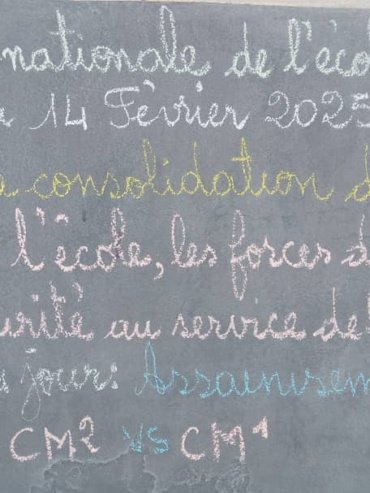 nationale de l'éco
14 Février 2025
a consolidation d
l'école, les forces d
urité au service de l
jour: Assainissem
CM2 vs CM1